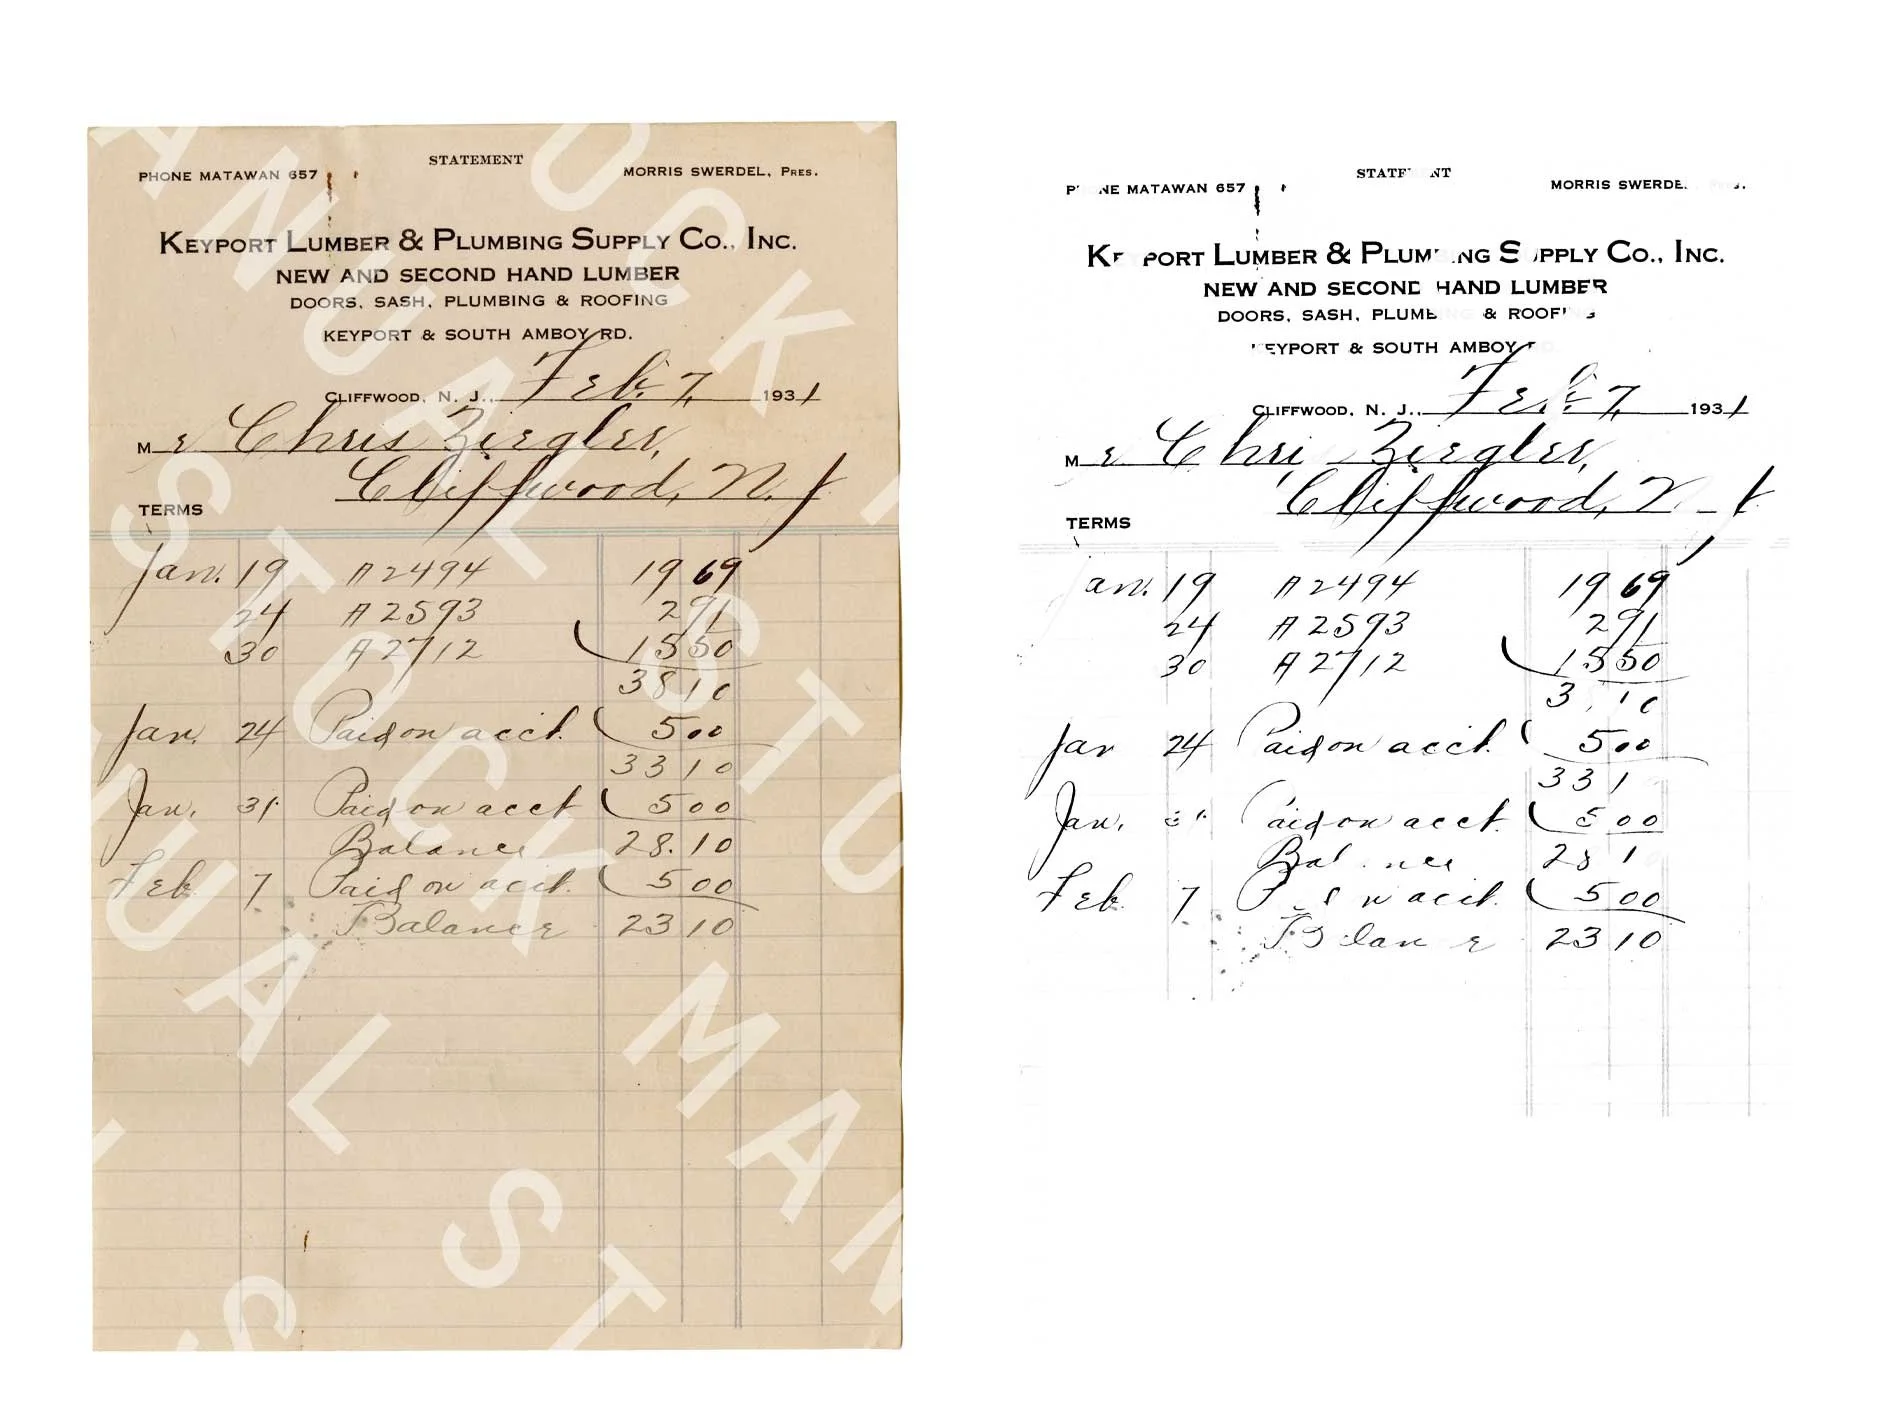 STATEMENT
PHONE MATAWAN 657 MORRIS SWERDEL, PRES.
KEYPORT LUMBER & PLUMBING SUPPLY CO., INC.
NEW AND SECOND HAND LUMBER
DOORS, SASH, PLUMBING & ROOFING
KEYPORT & SOUTH AMBOY RD.
CLIFFWOOD, N. J., Feb. 7, 1931
Mr Chris Ziegler,
Cliffwood, N. J.
TERMS
Jan. 19 A2494 19 69
24 A2593 2 91
30 A2712 15 50
38 10
Jan. 24 Paid on acct. 5 00
33 10
Jan. 31 Paid on acct 5 00
Balance 28.10
Feb. 7 Paid on acct. 5 00
Balance 23 10
MANUAL STOCK
STATEMENT
PHONE MATAWAN 657 MORRIS SWERDEL
KEYPORT LUMBER & PLUMBING SUPPLY CO., INC.
NEW AND SECOND HAND LUMBER
DOORS, SASH, PLUMBING & ROOFING
KEYPORT & SOUTH AMBOY RD.
CLIFFWOOD, N. J., Feb. 7, 1931
Mr Chri Ziegler,
Cliffwood, N. J.
TERMS
an. 19 A2494 19 69
24 A2593 2 91
30 A2712 15 50
3 10
Jan 24 Paid on acct. 5 00
33 1
Jan. 31 Paid on acct. 5 00
Balance 28 1
Feb. 7 P d n acct. 5 00
Balance 23 10